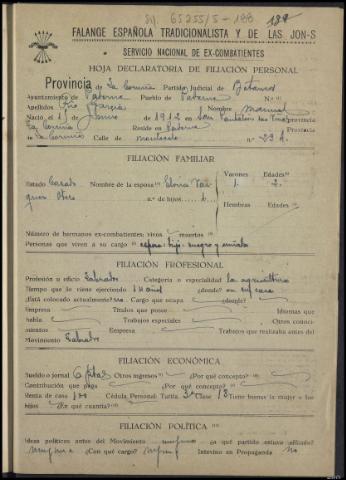 65255/5-188
FALANGE ESPAÑOLA TRADICIONALISTA Y DE LAS JON-S
SERVICIO NACIONAL DE EX-COMBATIENTES
HOJA DECLARATORIA DE FILIACIÓN PERSONAL
Provincia de La Coruña Partido Judicial de Betanzos
Ayuntamiento de Paderne Pueblo de Paderne N.º
Apellidos Río García Nombre Manuel
Nació el 15 de 1912 en San provincia
La Coruña Reside en Paderne Provincia
La Coruña Calle de n.º
FILIACIÓN FAMILIAR
Estado Casado Nombre de la esposa Elvira
Otero n.º de hijos
Varones 1 Edades 2
Hembras Edades
Número de hermanos ex-combatientes: vivos muertos
Personas que viven a su cargo esposa hijo suegro y cuñada
FILIACIÓN PROFESIONAL
Profesión u oficio Labrador Categoría o especialidad la agricultura
Tiempo que lo viene ejerciendo años ¿dónde? en su casa
¿Está colocado actualmente? no Cargo que ocupa ¿desde?
Empresa Títulos que posee Idiomas que
habla Trabajos especiales Otros conoci-
mientos Empresa Trabajos que realizaba antes del
Movimiento Labrador
FILIACIÓN ECONÓMICA
Sueldo o jornal 6 ptas Otros ingresos ¿Por qué concepto?
Contribución que paga ¿Por qué concepto?
Renta de casa Cédula Personal: Tarifa 3ª Clase 13 Tiene bienes la mujer o los
hijos ¿En qué cuantía?
FILIACIÓN POLÍTICA
Ideas políticas antes del Movimiento ninguna ¿a qué partido estuvo afiliado?
ninguno ¿Con qué cargo? Intervino en Propaganda No